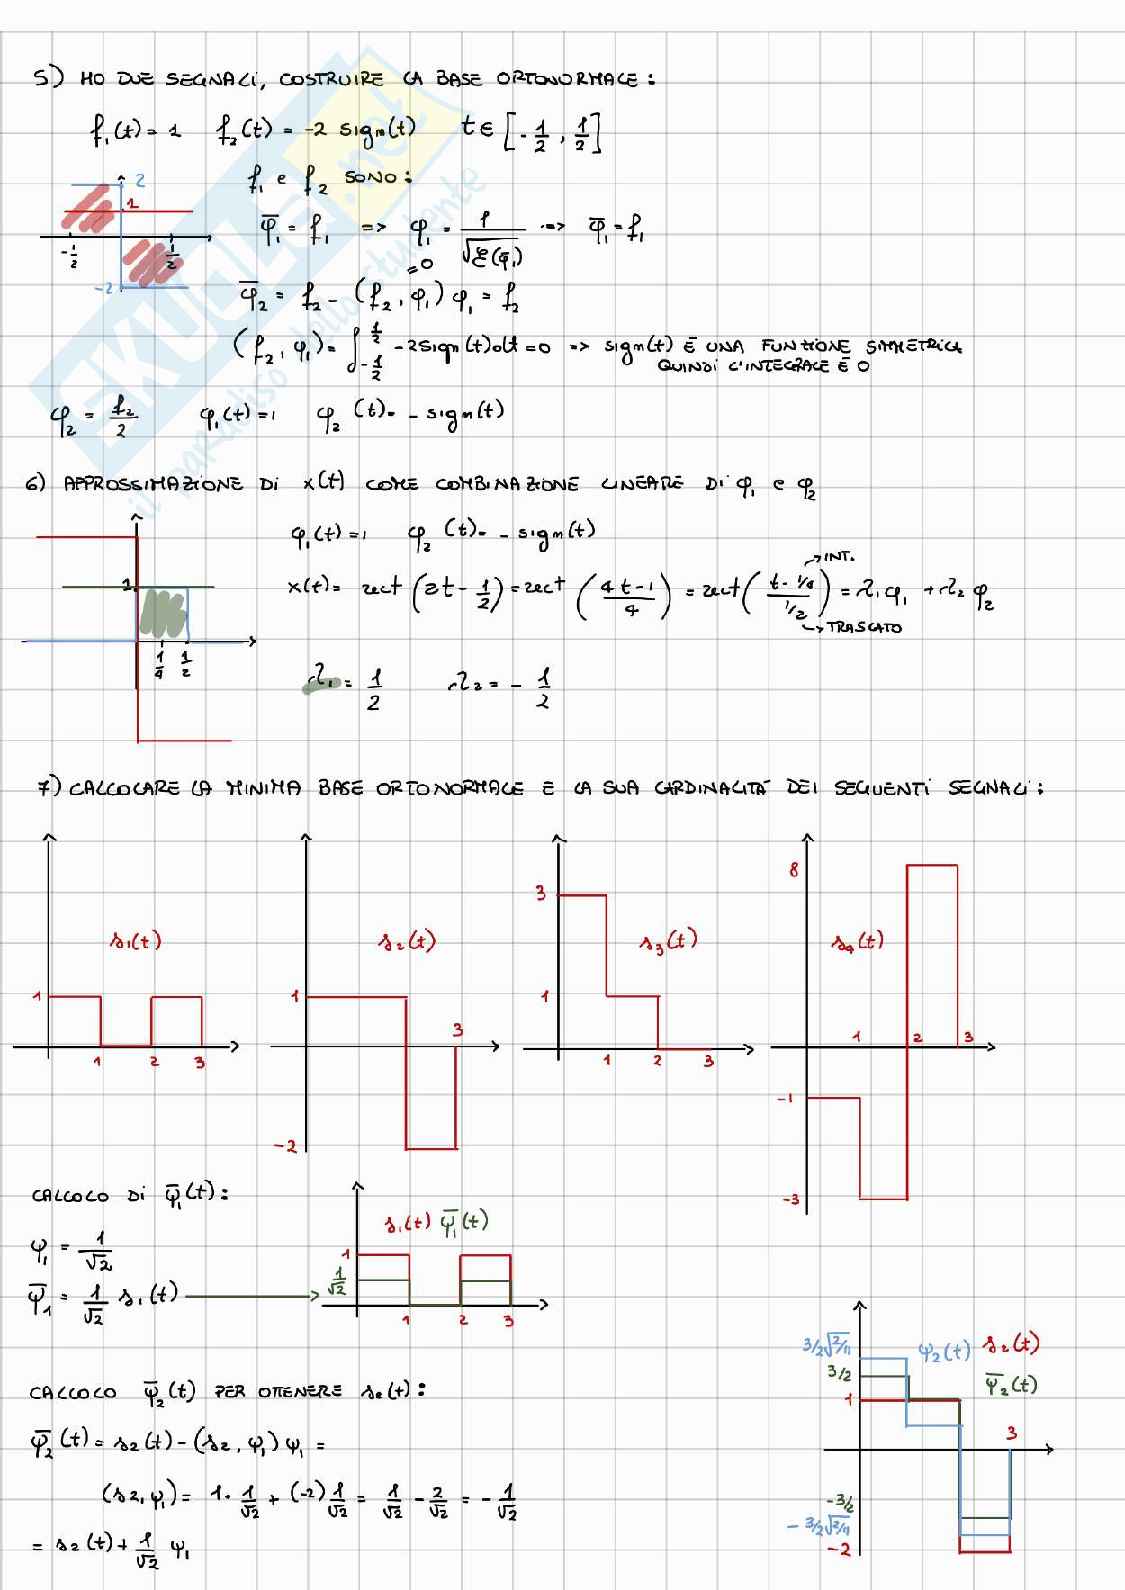 5) HO DUE SEGNALI, COSTRUIRE LA BASE ORTONORMALE:
f₁(t)= 1 f₂(t) = -2 sign(t) t ∈ [-1/2, 1/2]
f₁ e f₂ SONO:
2
1
-1/2 1/2
-2
φ̄₁ = f₁ => φ₁ = f/√ℰ(φ̄₁) => φ̄₁ = f₁
=0
φ̄₂ = f₂ - (f₂, φ₁) φ₁ = f₂
(f₂, φ₁) = ∫_{-1/2}^{1/2} -2sign(t)dt = 0 => sign(t) È UNA FUNZIONE SIMMETRICA
QUINDI L'INTEGRALE È 0
φ₂ = f₂/2 φ₁(t)=1 φ₂(t)= - sign(t)
SKUOLA.net
il paradiso dello studente
6) APPROSSIMAZIONE DI x(t) COME COMBINAZIONE LINEARE DI φ₁ e φ₂
φ₁(t)=1 φ₂(t)= - sign(t)
-> INT.
x(t)= rect(2t - 1/2) = rect((4t-1)/4) = rect((t-1/4)/(1/2)) = r₁ φ₁ + r₂ φ₂
-> TRASLATO
1
1/4 1/2
r₁ = 1/2 r₂ = - 1/2
7) CALCOLARE LA MINIMA BASE ORTONORMALE E LA SUA CARDINALITÀ DEI SEGUENTI SEGNALI:
s₁(t)
1
1 2 3
s₂(t)
1
3
-2
s₃(t)
3
1
1 2 3
s₄(t)
8
1 2 3
-1
-3
CALCOLO DI φ̄₁(t):
ψ₁ = 1/√2
ψ̄₁ = 1/√2 s₁(t)
s₁(t) ψ̄₁(t)
1
1/√2
1 2 3
CALCOLO φ̄₂(t) PER OTTENERE s₂(t):
φ̄₂(t) = s₂(t) - (s₂, ψ₁) ψ₁ =
(s₂, ψ₁) = 1· 1/√2 + (-2) 1/√2 = 1/√2 - 2/√2 = - 1/√2
= s₂(t) + 1/√2 ψ₁
3/2√2/11 ψ₂(t) s₂(t)
3/2 φ̄₂(t)
1
3
-3/2
- 3/2√2/11
-2